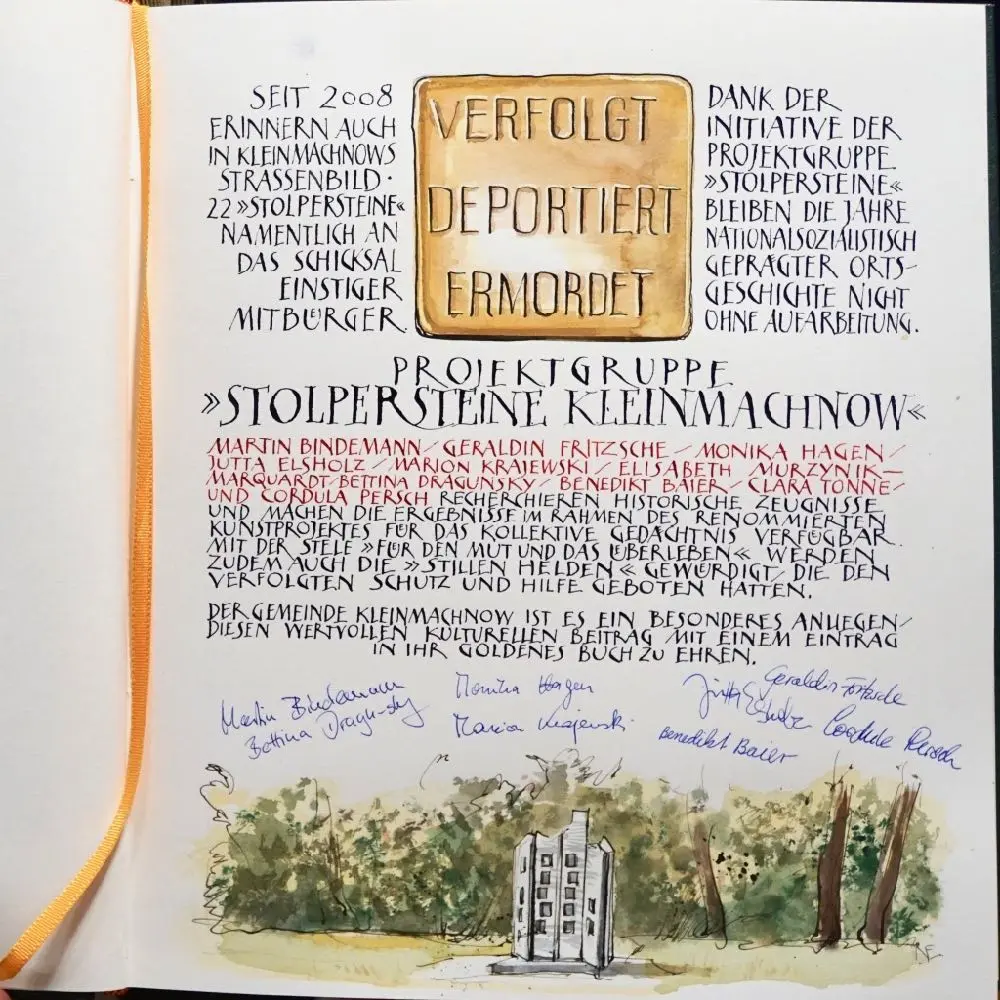 SEIT 2008
ERINNERN AUCH
IN KLEINMACHNOWS
STRASSENBILD ·
22 »STOLPERSTEINE«
NAMENTLICH AN
DAS SCHICKSAL
EINSTIGER
MITBÜRGER.
VERFOLGT
DEPORTIERT
ERMORDET
DANK DER
INITIATIVE DER
PROJEKTGRUPPE
»STOLPERSTEINE«
BLEIBEN DIE JAHRE
NATIONALSOZIALISTISCH
GEPRÄGTER ORTS-
GESCHICHTE NICHT
OHNE AUFARBEITUNG.
PROJEKTGRUPPE
»STOLPERSTEINE KLEINMACHNOW«
MARTIN BINDEMANN / GERALDIN FRITZSCHE / MONIKA HAGEN /
JUTTA ELSHOLZ / MARION KRAJEWSKI / ELISABETH MURZYNIK–
MARQUARDT / BETTINA DRAGUNSKY / BENEDIKT BAIER / CLARA TONNE /
UND CORDULA PERSCH RECHERCHIEREN HISTORISCHE ZEUGNISSE
UND MACHEN DIE ERGEBNISSE IM RAHMEN DES RENOMMIERTEN
KUNSTPROJEKTES FÜR DAS KOLLEKTIVE GEDÄCHTNIS VERFÜGBAR.
MIT DER STELE »FÜR DEN MUT UND DAS ÜBERLEBEN« WERDEN
ZUDEM AUCH DIE »STILLEN HELDEN« GEWÜRDIGT, DIE DEN
VERFOLGTEN SCHUTZ UND HILFE GEBOTEN HATTEN.
DER GEMEINDE KLEINMACHNOW IST ES EIN BESONDERES ANLIEGEN /
DIESEN WERTVOLLEN KULTURELLEN BEITRAG MIT EINEM EINTRAG
IN IHR GOLDENES BUCH ZU EHREN.
Martin Bindemann
Bettina Dragunsky
Monika Hagen
Marion Krajewski
Geraldin Fritzsche
Jutta Elsholz
Cordula Persch
Benedikt Baier